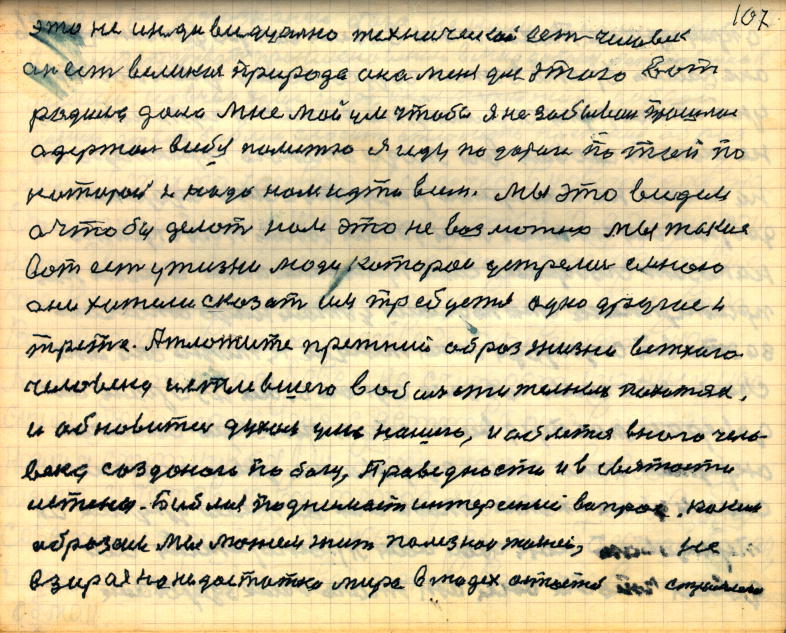 107
это не индивидуално технический ест человек
он ест великая природа она меня для этого вот
родила дала мне мой ум чтобы я не забывал прошлое
а держал в памятю я иду по дороги по той по
которой и надо нам идти всем. мы это видем
а чтобы делат нам это не возможно мы такие
вот ест у жизни люди которои
они хители сказат им требуется одно другие и
третте. Атложите прежний образ жизни ветхаго
человека истлевшего в похотях,
и абновится духом ума нашего, и в нового чело-
века созданого по богу, Праведности и в святости
истены. Библия поднимаит интересный вапрос, каким
образам мы можем жит полезной жизней, не
взирая на недостатки мира в людех